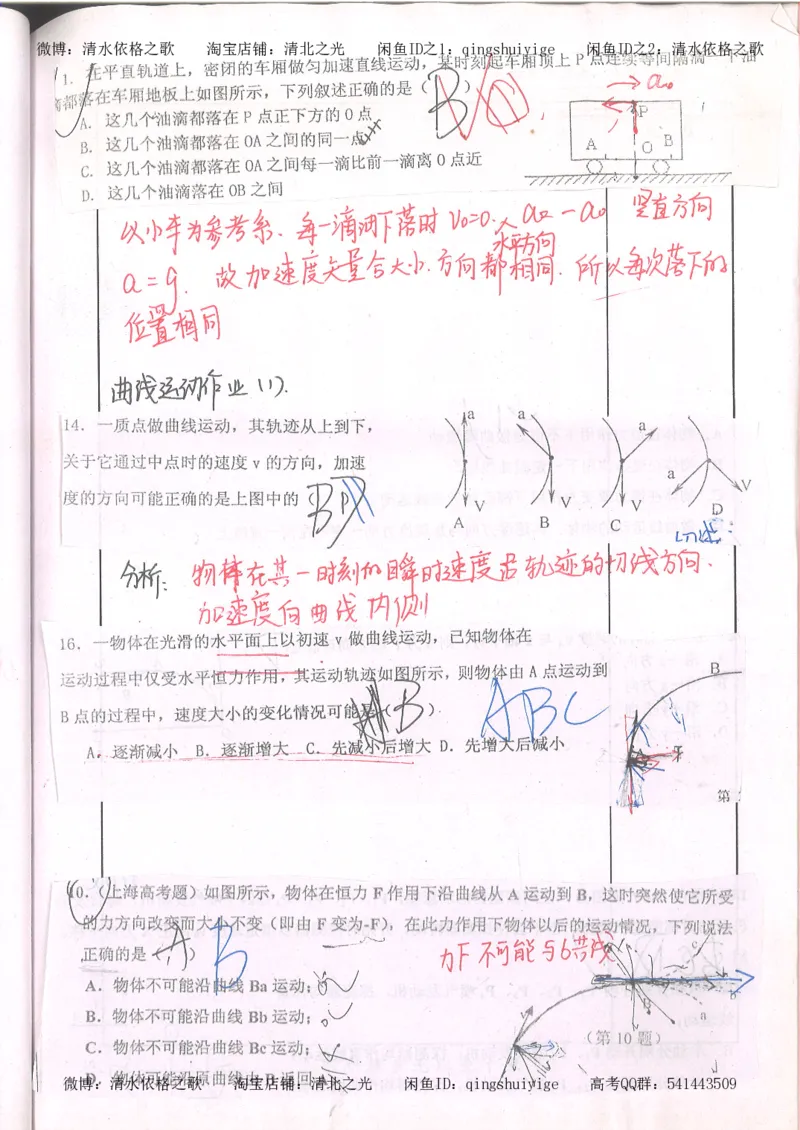 微博：清水依格之歌 淘宝店铺：清北之光 闲鱼ID之1：qingshuiyige 闲鱼ID之2：清水依格之歌
1. 在平直轨道上，密闭的车厢做匀加速直线运动，某时刻起车厢顶上 P 点连续等间隔滴一个油
滴都落在车厢地板上如图所示，下列叙述正确的是（ B ）
A. 这几个油滴都落在 P 点正下方的 O 点
B. 这几个油滴都落在 OA 之间的同一点
C. 这几个油滴都落在 OA 之间每一滴比前一滴离 O 点近
D. 这几个油滴落在 OB 之间
a₀
P
A O B
以小车为参考系、每一滴油下落时 V₀=0. 水平方向 -a₀ 竖直方向
a=g. 故加速度矢量合大小.方向都相同. 所以每次落下的
位置相同
曲线运动作业(1).
14. 一质点做曲线运动，其轨迹从上到下，
关于它通过中点时的速度 v 的方向，加速
度的方向可能正确的是上图中的（
a a a a
V V V V
A B C D
切线
分析: 物体在某一时刻的瞬时速度沿轨迹的切线方向.
加速度向曲线内侧
16. 一物体在光滑的水平面上以初速 v 做曲线运动，已知物体在
运动过程中仅受水平恒力作用，其运动轨迹如图所示，则物体由 A 点运动到
B 点的过程中，速度大小的变化情况可能是（ ） AB ABC
A. 逐渐减小 B. 逐渐增大 C. 先减小后增大 D. 先增大后减小
B
第
10.（上海高考题）如图所示，物体在恒力 F 作用下沿曲线从 A 运动到 B，这时突然使它所受
的力方向改变而大小不变（即由 F 变为-F），在此力作用下物体以后的运动情况，下列说法
正确的是（ A ） B
力F不可能与b共线
A. 物体不可能沿曲线 Ba 运动;
B. 物体不可能沿曲线 Bb 运动;
C. 物体不可能沿曲线 Bc 运动;
D. 物体可能沿原曲线由 B 返回
c
b
B
a
（第 10 题）
微博：清水依格之歌 淘宝店铺：清北之光 闲鱼ID：qingshuiyige 高考QQ群：541443509